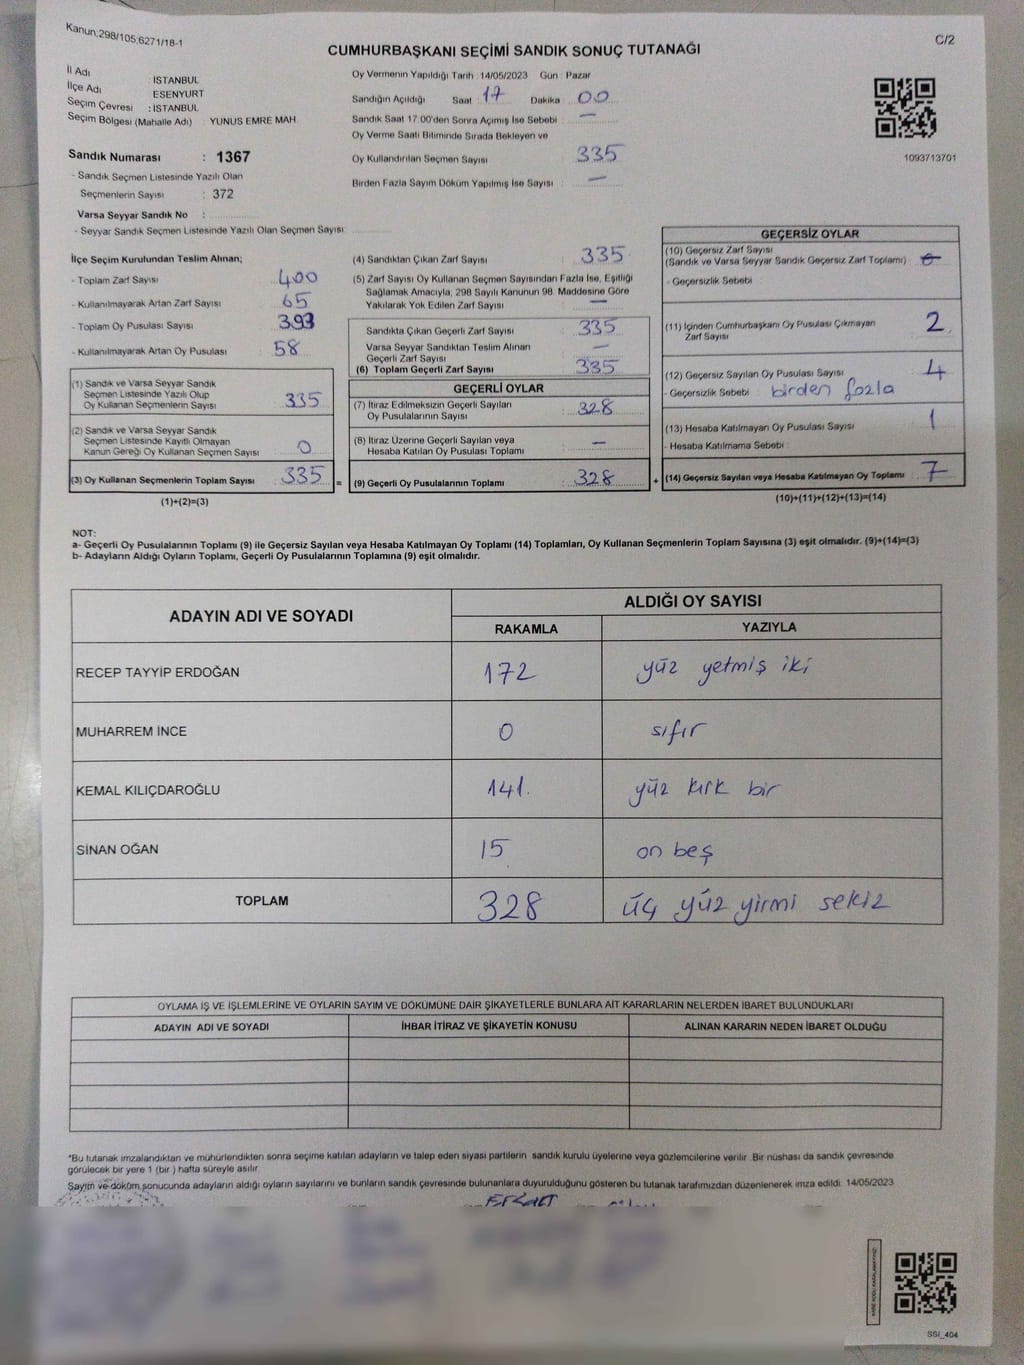 Kanun;298/105,6271/18-1
C/2
CUMHURBAŞKANI SEÇİMİ SANDIK SONUÇ TUTANAĞI
İl Adı : İSTANBUL
İlçe Adı ESENYURT
Seçim Çevresi : İSTANBUL
Seçim Bölgesi (Mahalle Adı) : YUNUS EMRE MAH
Sandık Numarası : 1367
- Sandık Seçmen Listesinde Yazılı Olan
Seçmenlerin Sayısı : 372
Varsa Seyyar Sandık No :
- Seyyar Sandık Seçmen Listesinde Yazılı Olan Seçmen Sayısı
Oy Vermenin Yapıldığı Tarih : 14/05/2023 Gün : Pazar
Sandığın Açıldığı Saat : 17 Dakika : 00
Sandık Saat 17:00'den Sonra Açımış İse Sebebi : —
Oy Verme Saati Bitiminde Sırada Bekleyen ve
Oy Kullandırılan Seçmen Sayısı : 335
Birden Fazla Sayım Döküm Yapılmış İse Sayısı : —
1093713701
İlçe Seçim Kurulundan Teslim Alınan;
- Toplam Zarf Sayısı : 400
- Kullanılmayarak Artan Zarf Sayısı : 65
- Toplam Oy Pusulası Sayısı : 393
- Kullanılmayarak Artan Oy Pusulası : 58
(1) Sandık ve Varsa Seyyar Sandık
Seçmen Listesinde Yazılı Olup
Oy Kullanan Seçmenlerin Sayısı : 335
(2) Sandık ve Varsa Seyyar Sandık
Seçmen Listesinde Kayıtlı Olmayan
Kanun Gereği Oy Kullanan Seçmen Sayısı : 0
(3) Oy Kullanan Seçmenlerin Toplam Sayısı : 335 =
(1)+(2)=(3)
(4) Sandıktan Çıkan Zarf Sayısı : 335
(5) Zarf Sayısı Oy Kullanan Seçmen Sayısından Fazla İse, Eşitliği
Sağlamak Amacıyla, 298 Sayılı Kanunun 98. Maddesine Göre
Yakılarak Yok Edilen Zarf Sayısı : —
Sandıkta Çıkan Geçerli Zarf Sayısı : 335
Varsa Seyyar Sandıktan Teslim Alınan
Geçerli Zarf Sayısı : —
(6) Toplam Geçerli Zarf Sayısı : 335
GEÇERLİ OYLAR
(7) İtiraz Edilmeksizin Geçerli Sayılan
Oy Pusulalarının Sayısı : 328
(8) İtiraz Üzerine Geçerli Sayılan veya
Hesaba Katılan Oy Pusulası Toplamı : —
(9) Geçerli Oy Pusulalarının Toplamı : 328 +
GEÇERSİZ OYLAR
(10) Geçersiz Zarf Sayısı
(Sandık ve Varsa Seyyar Sandık Geçersiz Zarf Toplamı) :
- Geçersizlik Sebebi :
(11) İçinden Cumhurbaşkanı Oy Pusulası Çıkmayan
Zarf Sayısı : 2
(12) Geçersiz Sayılan Oy Pusulası Sayısı : 4
- Geçersizlik Sebebi : birden fazla
(13) Hesaba Katılmayan Oy Pusulası Sayısı : 1
- Hesaba Katılmama Sebebi :
(14) Geçersiz Sayılan veya Hesaba Katılmayan Oy Toplamı : 7
(10)+(11)+(12)+(13)=(14)
NOT:
a- Geçerli Oy Pusulalarının Toplamı (9) ile Geçersiz Sayılan veya Hesaba Katılmayan Oy Toplamı (14) Toplamları, Oy Kullanan Seçmenlerin Toplam Sayısına (3) eşit olmalıdır. (9)+(14)=(3)
b- Adayların Aldığı Oyların Toplamı, Geçerli Oy Pusulalarının Toplamına (9) eşit olmalıdır.
ADAYIN ADI VE SOYADI
ALDIĞI OY SAYISI
RAKAMLA YAZIYLA
RECEP TAYYİP ERDOĞAN 172 yüz yetmiş iki
MUHARREM İNCE 0 sıfır
KEMAL KILIÇDAROĞLU 141 yüz kırk bir
SİNAN OĞAN 15 on beş
TOPLAM 328 üç yüz yirmi sekiz
OYLAMA İŞ VE İŞLEMLERİNE VE OYLARIN SAYIM VE DÖKÜMÜNE DAİR ŞİKAYETLERLE BUNLARA AİT KARARLARIN NELERDEN İBARET BULUNDUKLARI
ADAYIN ADI VE SOYADI İHBAR İTİRAZ VE ŞİKAYETİN KONUSU ALINAN KARARIN NEDEN İBARET OLDUĞU
*Bu tutanak imzalandıktan ve mühürlendikten sonra seçime katılan adayların ve talep eden siyasi partilerin sandık kurulu üyelerine veya gözlemcilerine verilir. Bir nüshası da sandık çevresinde
görülecek bir yere 1 (bir ) hafta süreyle asılır.
Sayım ve döküm sonucunda adayların aldığı oyların sayılarını ve bunların sandık çevresinde bulunanlara duyurulduğunu gösteren bu tutanak tarafımızdan düzenlenerek imza edildi. 14/05/2023
SSI_404